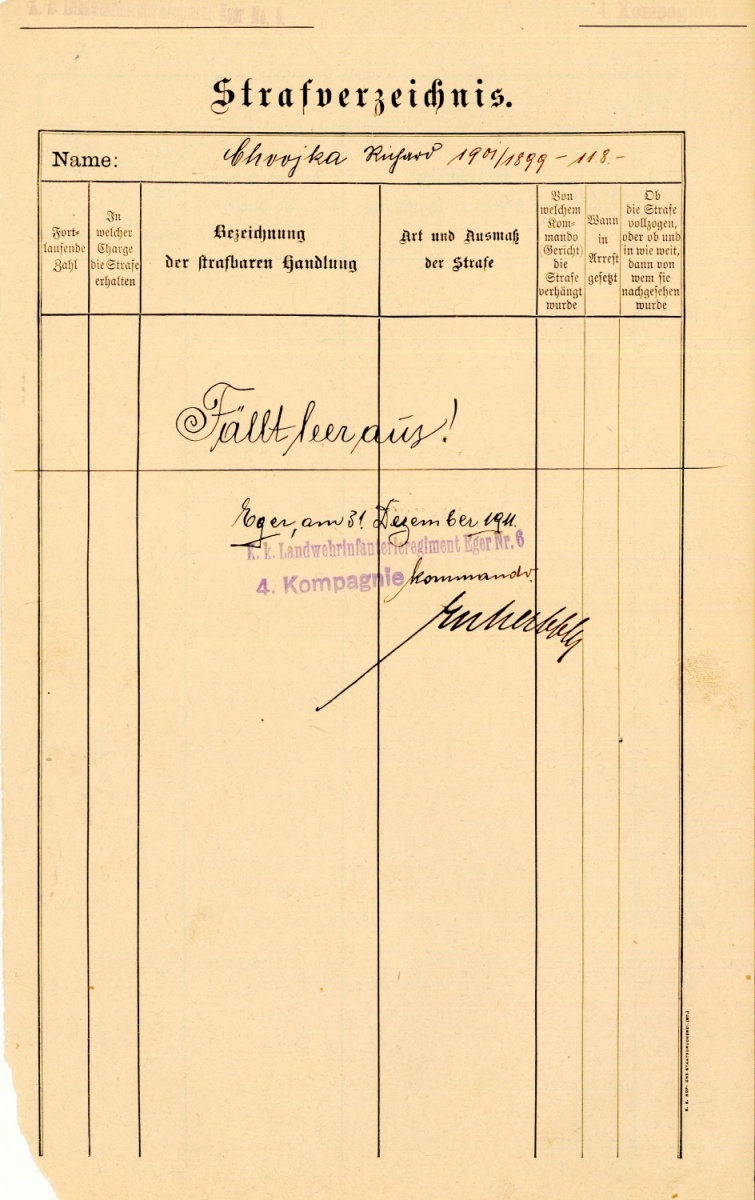 k. k. Landwehrinfanterieregiment Eger Nr. 6
4. Kompagnie
Strafverzeichnis.
Name: Chvojka Richard 1901/1899 - 118 -
Fort-
laufende
Zahl
In
welcher
Charge
die Strafe
erhalten
Bezeichnung
der strafbaren Handlung
Art und Ausmaß
der Strafe
Von
welchem
Kom-
mando
(Gericht)
die
Strafe
verhängt
wurde
Wann
in
Arrest
gesetzt
Ob
die Strafe
vollzogen,
oder ob und
in wie weit,
dann von
wem sie
nachgesehen
wurde
Fällt leer aus!
Eger, am 31. Dezember 1911.
k. k. Landwehrinfanterieregiment Eger Nr. 6
4. Kompagnie kommando.
K. K. HOF- UND STAATSDRUCKEREI.